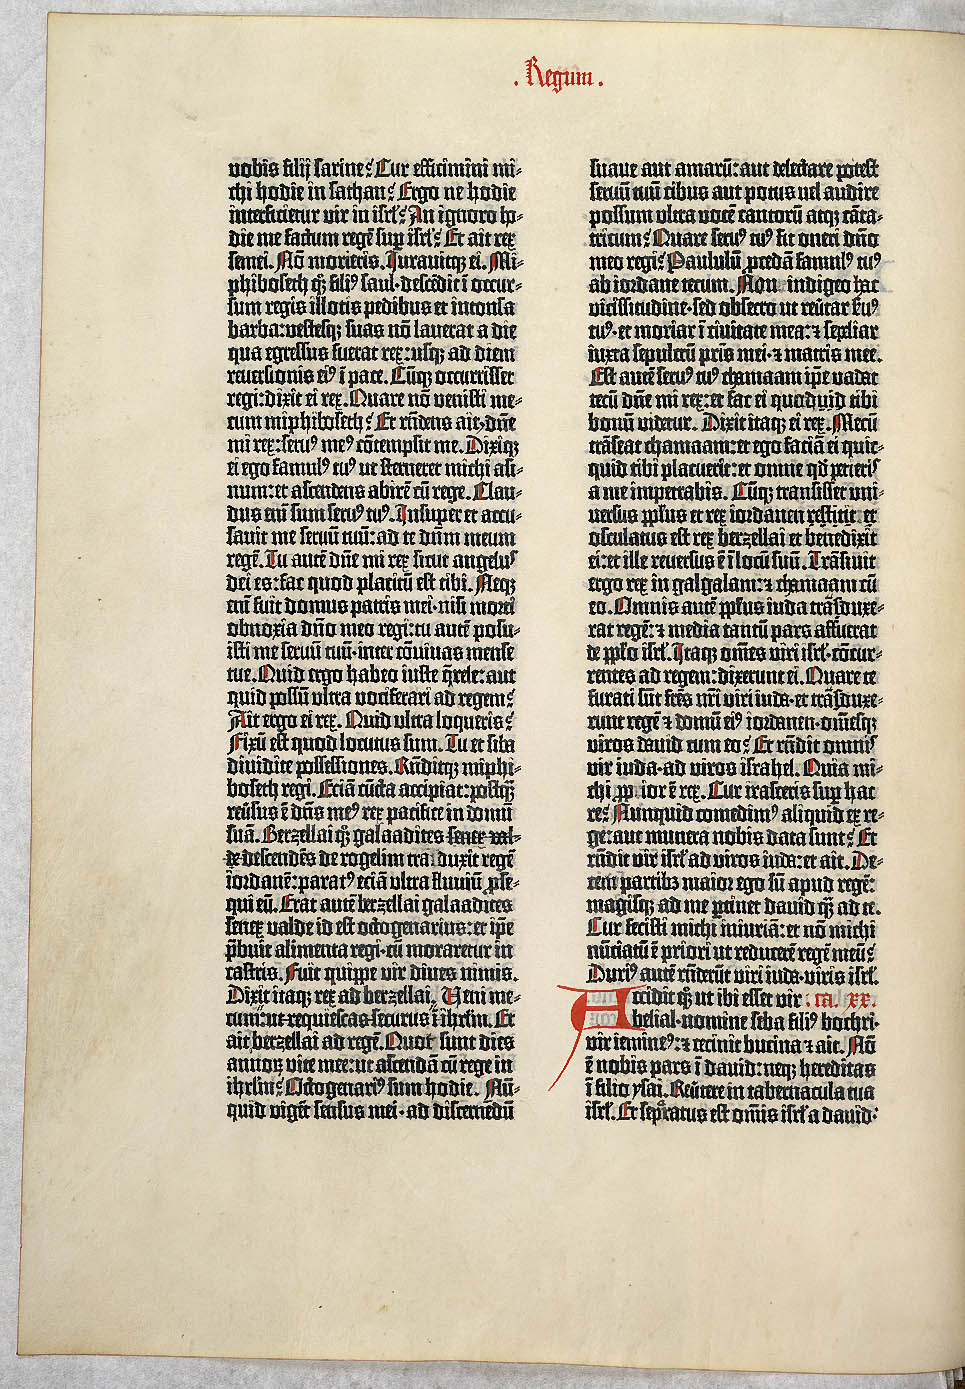 . Regum .
nobis filij sarvie? Cur efficimini mi-
chi hodie in sathan? Ergo ne hodie
interficietur vir in isrl'? An ignoro ho-
die me factum regē sup isrl'? Et ait rex
semei. Nō morieris. Iuravitqz ei. Mi-
phiboseth qz fili⁹ saul descēdit ī occur-
sum regis illotis pedibus et intonsa
barba: vestesqz suas nō laverat a die
qua egressus fuerat rex: usqz ad diem
reversionis ei⁹ ī pace. Cūqz occurrisset
regi: dixit ei rex. Quare nō venisti me-
cum miphiboseth? Et rñdens ait. dñe
mi rex: servu⁹ me⁹ cōtempsit me. Dixiqz
ei ego famul⁹ tu⁹ ut sterneret michi asi-
num: et ascendens abirē cū rege. Clau-
dus em̄ sum servu⁹ tu⁹. Insuper et accu-
savit me servū tuū: ad te dñm meum
regē. Tu autē dñe mi rex sicut angelus
dei es: fac quod placitū est tibi. Neqz
em̄ fuit domus patris mei nisi morti
obnoxia dño meo regi: tu autē posu-
isti me servū tuū inter cōvivas mense
tue. Quid ergo habeo iuste q̄rele: aut
quid possū ultra vociferari ad regem?
Ait ergo ei rex. Quid ultra loqueris?
Fixū est quod locutus sum. Tu et siba
dividite possessiones. Rñditqz miphi-
boseth regi. Eciā cūcta accipiat: postqz
reūsus ē dñs me⁹ rex pacifice in domū
suā. Berzellai qz galaadites senex val-
de descendēs de rogelim tra. duxit regē
iordanē: parat⁹ eciā ultra fluviū pse-
qui eū. Erat autē berzellai galaadites
senex valde id est octogenarius: et ip̄e
p̄buit alimenta regi cū moraretur in
castris. Fuit quippe vir dives nimis.
Dixit itaqz rex ad berzellai. Veni me-
cum: ut requiescas securus ī ihrlm. Et
ait berzellai ad regē. Quot sunt dies
annoꝝ vite mee: ut ascendā cū rege in
ihrlm? Octogenari⁹ sum hodie. Nū-
quid vigēt sensus mei ad discernēdū
suave aut amarū: aut delectare potest
servū tuū cibus aut potus vel audire
possum ultra vocē cantorū atqz cāta-
tricum? Quare servu⁹ tu⁹ sit oneri dño
meo regi? Paululū procedā famul⁹ tu⁹
ab iordane tecum. Non indigeo hac
vicissitudine. sed obsecro ut reūtar ſu⁹
tu⁹. et moriar ī civitate mea: ⁊ sepliar
iuxta sepulcrū pris mei ⁊ matris mee.
Est autē servu⁹ tu⁹ chamaam ip̄e vadat
tecū dñe mi rex: et fac ei quod tibi
bonū videtur. Dixit itaqz ei rex. Mecū
trāseat chamaam: et ego faciā ei quic-
quid tibi placuerit: et omne qd petieris
a me impetrabis. Cūqz transisset uni-
versus pplus et rex iordanen restitit. et
osculatus est rex berzellai et benedixit
ei: et ille reversus ē ī locū suū. Trāsivit
ergo rex in galgalam: ⁊ chamaam cū
eo. Omnis autē pplus iuda trāsduxe-
rat regē: ⁊ media tantū pars affuerat
de pplo isrl'. Itaqz om̄es viri isrl' cōcur-
rentes ad regem: dixerunt ei. Quare te
furati sūt fres nr̄i viri iuda. et trāsduxe-
runt regē ⁊ domū ei⁹ iordanen. om̄esqz
viros david cum eo? Et rñdit omnis
vir iuda. ad viros israhel. Quia mi-
chi pp̄ior ē rex. Cur irasceris sup hac
re? Nunquid comedim⁹ aliquid ex re-
ge: aut munera nobis data sunt? Et
rñdit vir isrl' ad viros iuda: et ait. De-
cem partibz maior ego sū apud regē:
magisqz ad me ptinet david qz ad te.
Cur fecisti michi iniuriā: et nō michi
nūciatū ē priori ut reducerē regē meū?
Duri⁹ autē rñderūt viri iuda. viris isrl'.
Accidit qz ut ibi esset vir . ca. XX.
belial. nomine seba fili⁹ bochri.
vir iemine⁹: ⁊ cecinit bucina ⁊ ait. Nō
ē nobis pars ī david: neqz hereditas
ī filio ysai. Reūtere in tabernacula tua
isrl'. Et sepratus est om̄is isrl' a david: